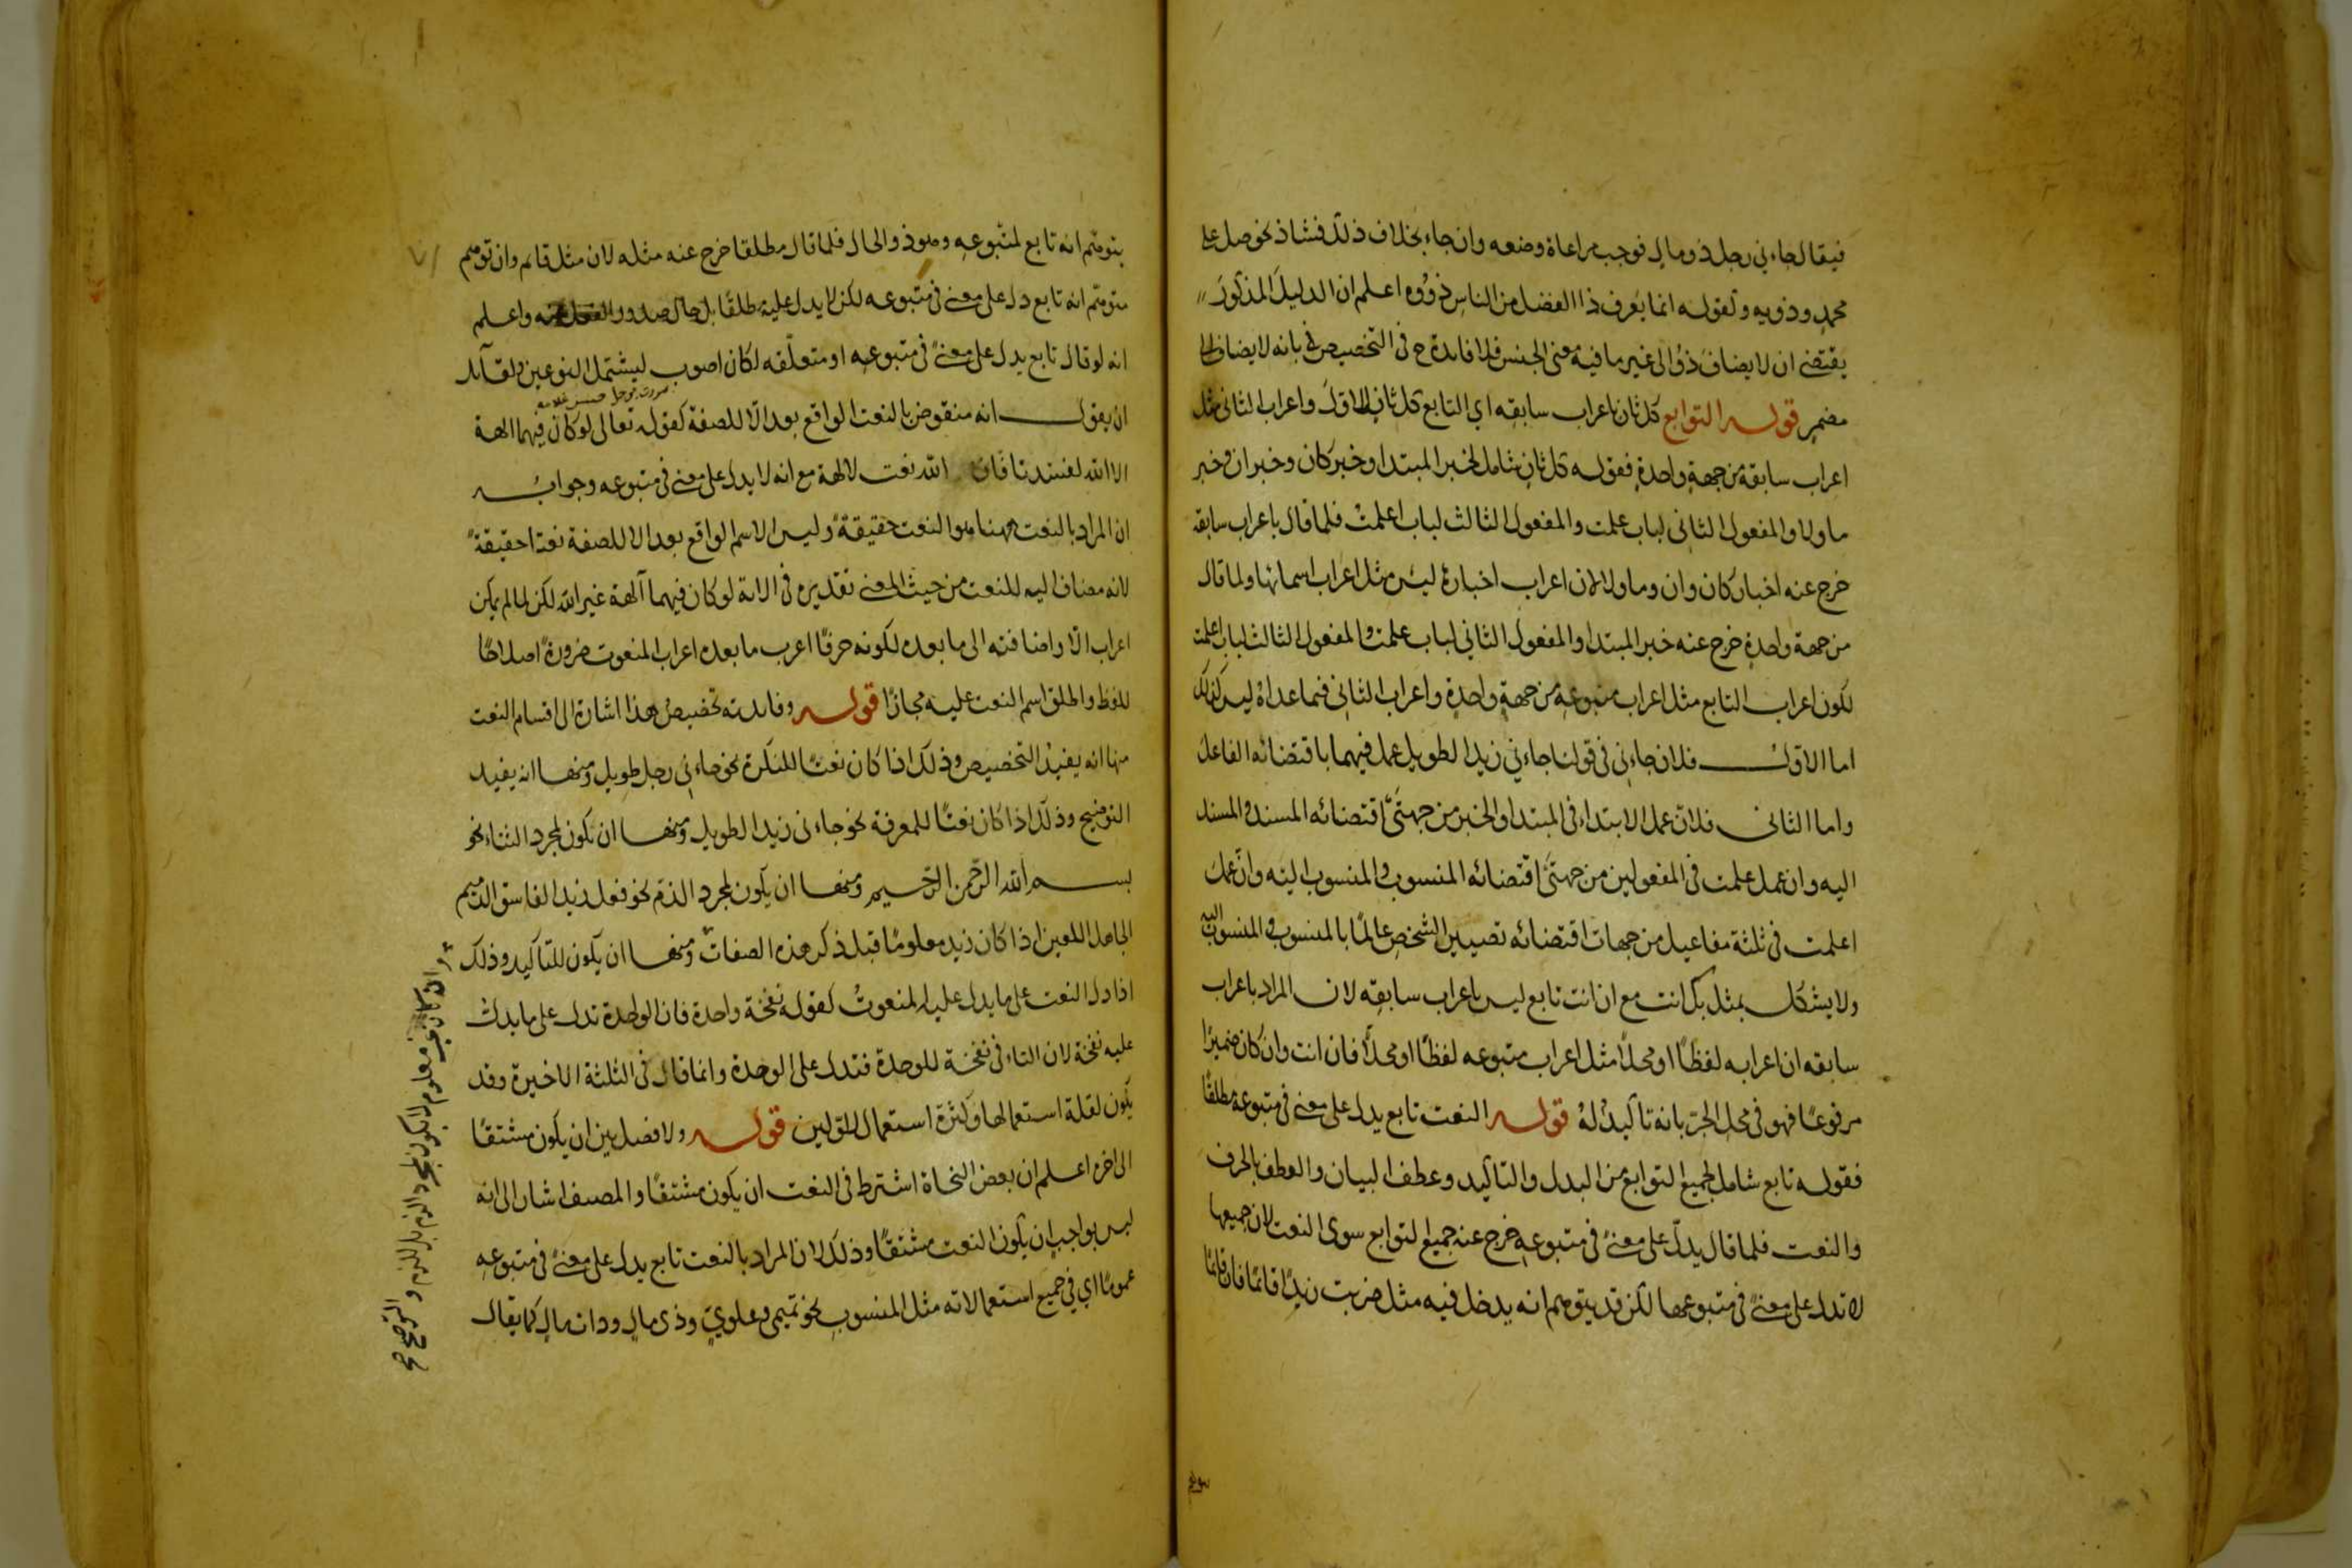 فيقال جاءني رجل ذو مال فوجب مراعاة وضعه وان جاء بخلاف ذلك فشاذ نحو صل على
محمد وذويه وكقوله انما يعرف ذا الفضل من الناس ذووه اعلم ان الدليل المذكور
يقتضي ان لا يضاف ذو الى غير ما فيه معنى الجنس فلا فائدة ح في التخصيص في بانه لا يضاف الى
مضمر قوله التوابع كل ثان باعراب سابقه اي التابع كل ثان للاول واعراب الثاني مثل
اعراب سابقه من جهة واحدة فقوله كل ثان شامل لخبر المبتدا وخبر كان وخبر ان وخبر
ما ولا والمفعول الثاني لباب علمت والمفعول الثالث لباب اعلمت فلما قال باعراب سابقه
خرج عنه اخبار كان وان وما ولا لان اعراب اخباره ليس مثل اعراب اسمائها ولما قال
من جهة واحدة خرج عنه خبر المبتدا والمفعول الثاني لباب علمت والمفعول الثالث لباب اعلمت
لكون اعراب التابع مثل اعراب متبوعه من جهة واحدة واعراب الثاني فيما عداه ليس كذلك
اما الاول فلان جاءني في قولنا جاءني زيد الطويل عمل فيهما باقتضائه الفاعل
واما الثاني فلان عمل الابتداء في المبتدا والخبر من جهتي اقتضائه المسند والمسند
اليه وان عمل علمت في المفعولين من جهتي اقتضائه المنسوب والمنسوب اليه وان عمل
اعلمت في ثلثة مفاعيل من جهات اقتضائه تصيير الشخص عالما بالمنسوب والمنسوب اليه
ولا يشكل بمثل بك انت مع ان انت تابع ليس باعراب سابقه لان المراد باعراب
سابقه ان اعرابه لفظا او محلا مثل اعراب متبوعه لفظا او محلا فان انت وان كان ضميرا
مرفوعا فهو في محل الجر بانه تاكيد له قوله النعت تابع يدل على معنى في متبوعه مطلقا
فقوله تابع شامل لجميع التوابع من البدل والتاكيد وعطف البيان والعطف بالحرف
والنعت فلما قال يدل على معنى في متبوعه خرج عنه جميع التوابع سوى النعت لان جميعها
لا تدل على معنى في متبوعها لكن قد يتوهم انه يدخل فيه مثل ضربت زيدا قائما فان قائما
يتوهم انه تابع لمتبوعه وهو ذو الحال فلما قال مطلقا خرج عنه مثله لان مثل قائم وان توهم
متوهم انه تابع دل على معنى في متبوعه لكن لا يدل عليه مطلقا بل حال صدور الفعل عنه واعلم
انه لو قال تابع يدل على معنى في متبوعه او متعلقه لكان اصوب ليشتمل النوعين ولقائل
ان يقول انه منقوض بالنعت الواقع بعد الا للصفة كقوله تعالى لو كان فيهما الهة
الا الله لفسدتا فان الله نعت لالهة مع انه لا يدل على معنى في متبوعه وجوابه
ان المراد بالنعت ههنا هو النعت حقيقة وليس الاسم الواقع بعد الا للصفة نعتا حقيقة
لانه مضاف اليه للنعت من حيث المعنى تقديره في الاية لو كان فيهما آلهة غير الله لكن لما لم يكن
اعراب الا واضافته الى ما بعده لكونه حرفا اعرب ما بعده اعراب المنعوت ضرورة اصلاحا
للفظ واطلق اسم النعت عليه مجازا قوله وفائدته تخصيص هذا اشارة الى اقسام النعت
منها انه يفيد التخصيص وذلك اذا كان نعتا للنكرة نحو جاءني رجل طويل ومنها انه يفيد
التوضيح وذلك اذا كان نعتا للمعرفة نحو جاءني زيد الطويل ومنها ان يكون لمجرد الثناء نحو
بسم الله الرحمن الرحيم ومنها ان يكون لمجرد الذم نحو فعل زيد الفاسق الدميم
الجاهل اللعين اذا كان زيد معلوما قبل ذكر هذه الصفات ومنها ان يكون للتاكيد وذلك
اذا دل النعت على ما يدل عليه المنعوت كقوله نفخة واحدة فان الواحدة تدل على ما يدل
عليه نفخة لان التاء في نفخة للوحدة فتدل على الوحدة وانما قال في الثلثة الاخيرة وقد
يكون لقلة استعمالها وكثرة استعمال الاولين قوله ولا فصل بين ان يكون مشتقا
الى اخره اعلم ان بعض النحاة اشترط في النعت ان يكون مشتقا والمصنف اشار الى انه
ليس بواجب ان يكون النعت مشتقا وذلك لان المراد بالنعت تابع يدل على معنى في متبوعه
عموما اي في جميع استعمالاته مثل المنسوب نحو تميمي وعلوي وذي مال وذات مال كما يقال
وان كان غير معلوم لا يكون لمجرد الذم بل للذم و
التوضيح صح